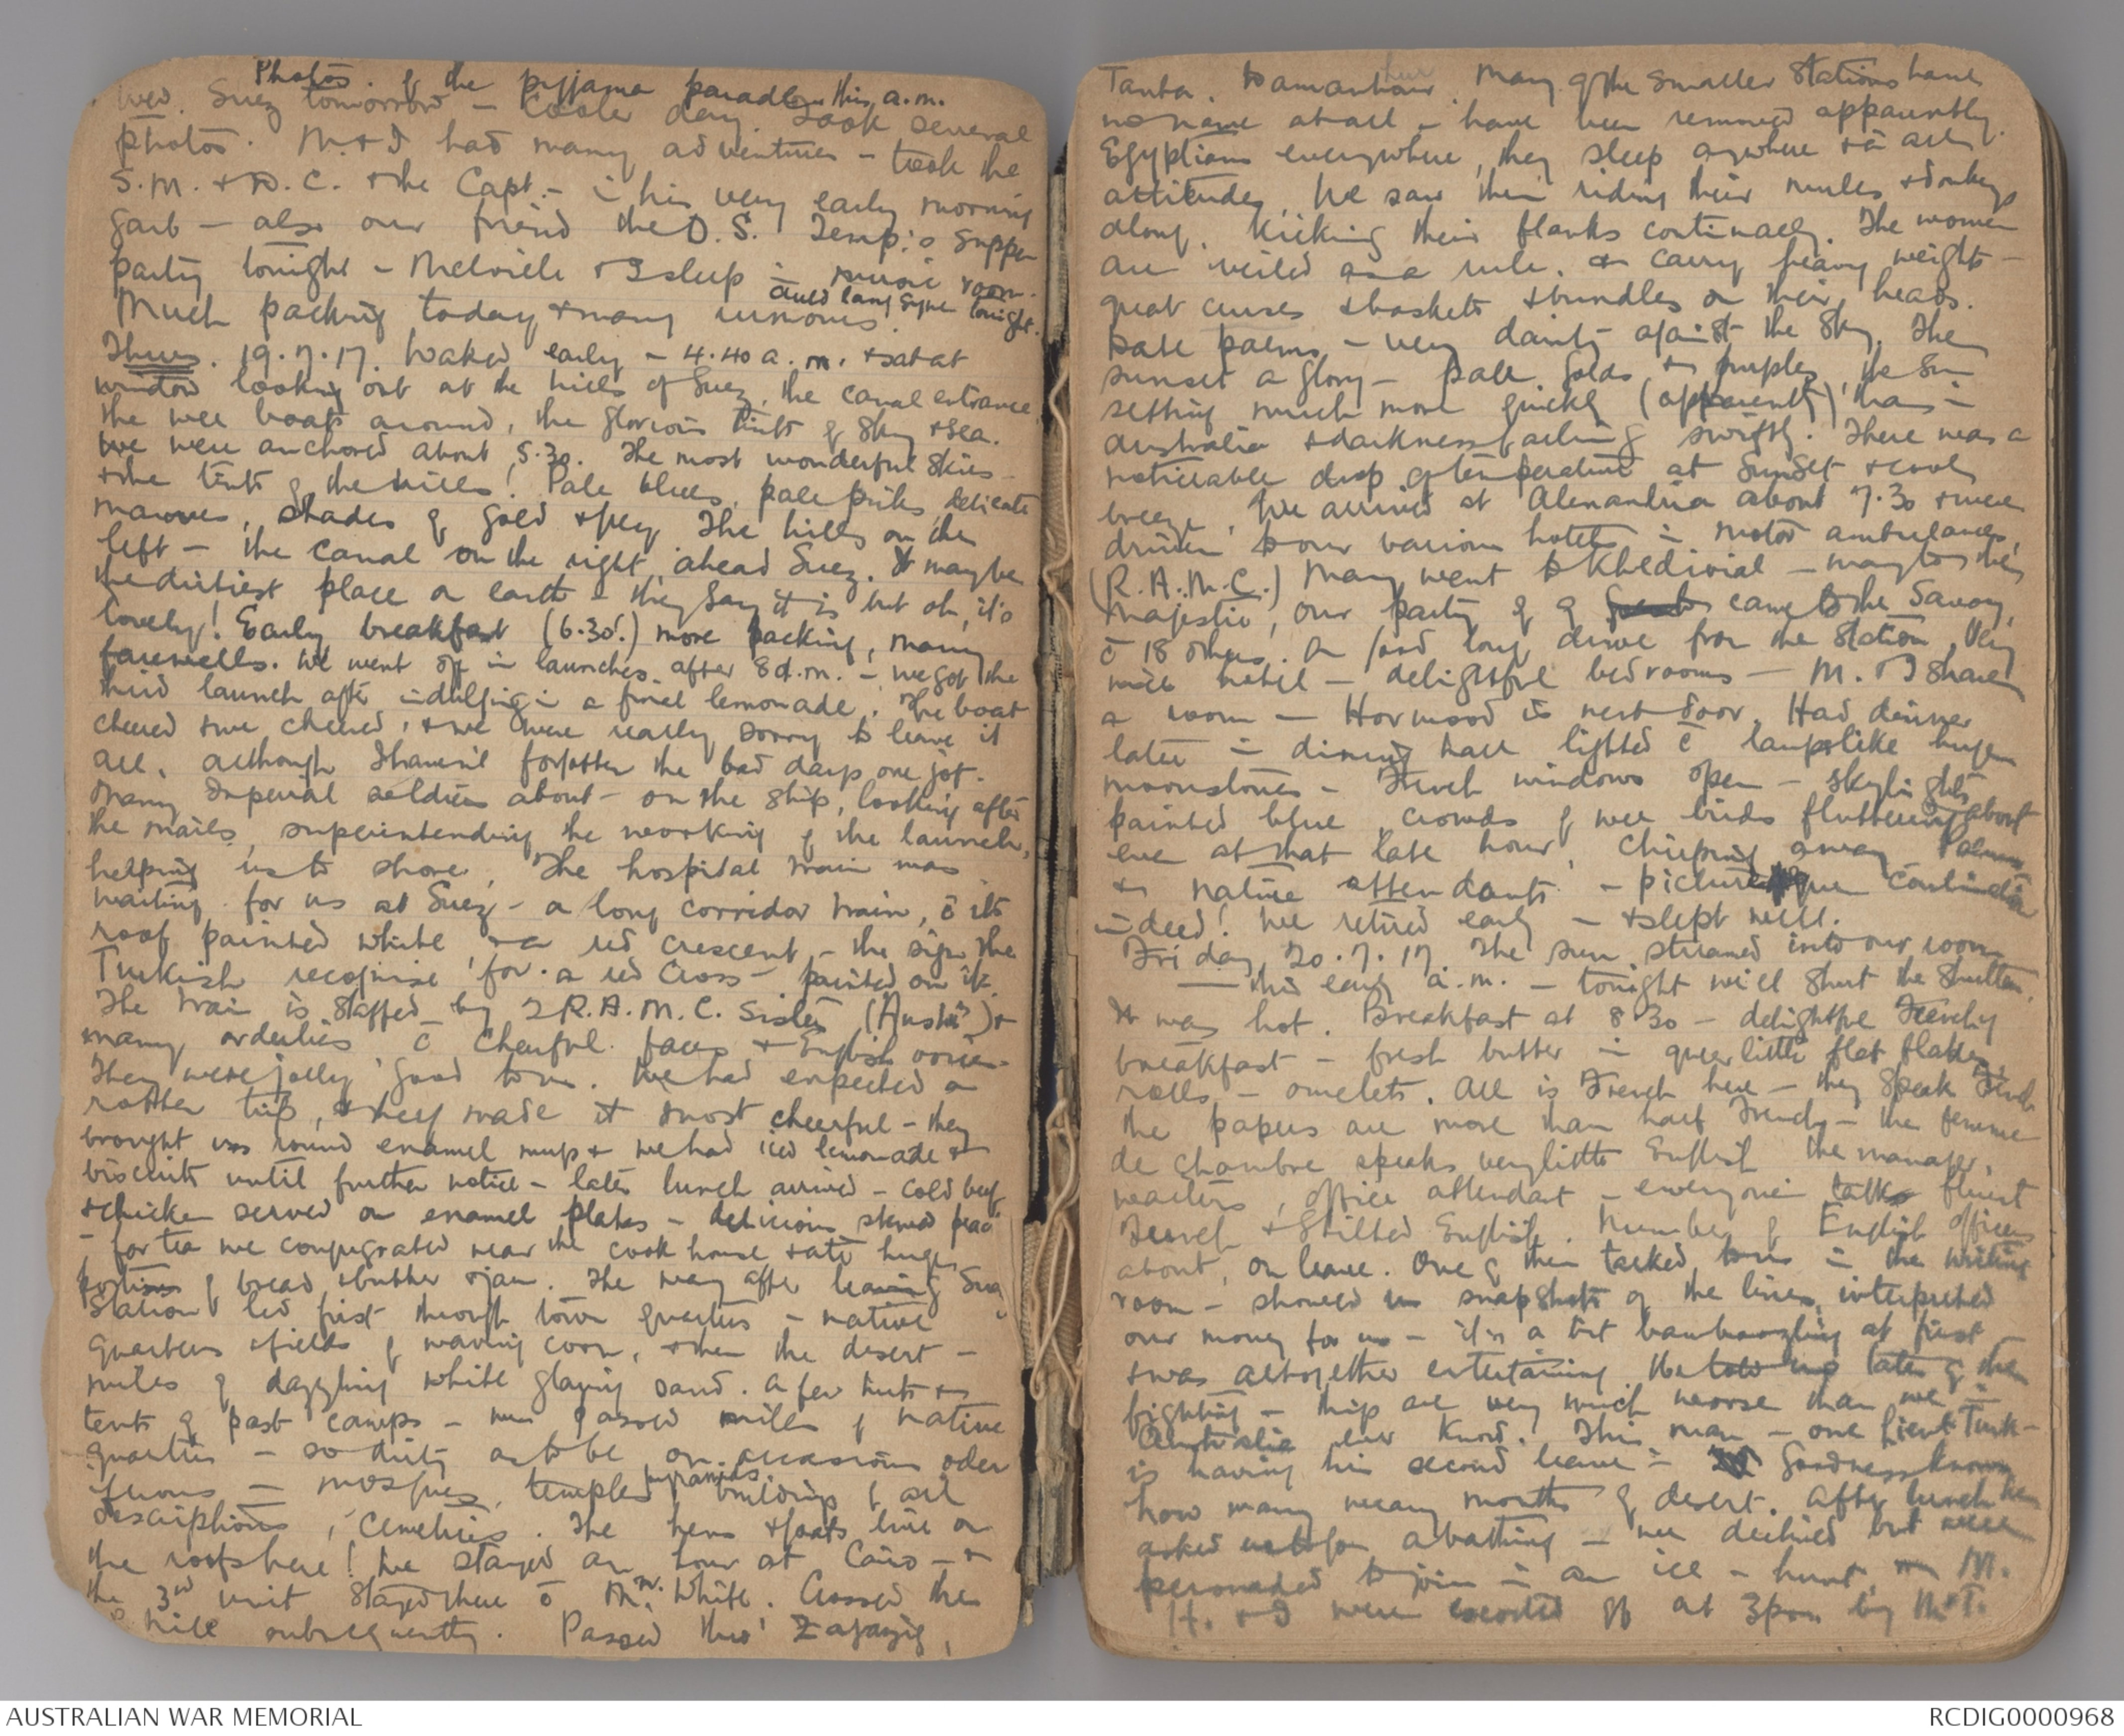 Photos. of the pyjama parade this a.m.
Wed. Suez tomorrow – Cooler day. Took several
photos. M. & I had many adventures – took the
S.M. & O.C. & the Capt. – in his very early morning
garb – also our friend the O.S. Temp's supper
party tonight – Melville & I sleep in music room.
Auld lang syne tonight.
Much packing today & many rumours.
Thurs. 19.7.17. Waked early – 4.40 a.m. & sat at
window looking out at the hills of Suez, the canal entrance
the wee boats around, the glorious tints of sky & sea.
We were anchored about 5.30. The most wonderful skies –
& the tints of the hills! Pale blues, pale pinks, delicate
mauves, shades of gold & grey. The hills on the
left – the canal on the right, ahead Suez. It may be
the dirtiest place on earth – they say it is but oh, it's
lovely! Early breakfast (6.30.) more packing, many
farewells. We went off in launches after 8 a.m. – we got the
third launch after indulging in a final lemonade. The boat
cheered & we cheered, & we were really sorry to leave it
all, although I haven't forgotten the bad days one jot.
Many Imperial soldiers about – on the ship, looking after
the mails, superintending the working of the launch,
helping us to shore. The hospital train was
waiting for us at Suez – a long corridor train, c̄ its
roof painted white, & a red crescent – the sign the
Turkish recognise for a red Cross – painted on it.
The train is staffed by 2 R.A.M.C. Sisters (Austn's) &
many orderlies c̄ cheerful faces & English voices.
They were jolly good to us. We had expected a
rotten trip, & they made it most cheerful – they
brought us round enamel mugs & we had iced lemonade &
biscuits until further notice – later lunch arrived – cold beef
& chicken served on enamel plates – delicious stewed
– for tea we congregated near the cook house & ate huge
portions of bread & butter & jam. The way after leaving Suez
Station led first through town quarters – native
quarters & fields of waving corn, & then the desert –
miles of dazzling white glaring sand. A few huts &
tents of past camps – we passed miles of native
quarters – so dirty as to be on occasions oder
iferous – mosques, temples, pyramids buildings of all
descriptions, cemeteries. The hens & goats live on
the roofs here! We stayed an hour at Cairo – &
the 3rd unit stayed there c̄ Mr. White. Crossed the
Nile subsequently. Passed thro' Zagazig,
Tanta, Damanhur. Many of the smaller stations have
no name at all – have been removed apparently.
Egyptians everywhere, they sleep anywhere & in any
attitude. We saw them riding their mules & donkeys
along, kicking their flanks continually. The women
are veiled as a rule, & carry heavy weights –
great cruses & baskets & bundles on their heads.
Date palms – very dainty against the sky. The
sunset a glory – pale golds & purples, the sun
setting much more quickly (apparently) than in
Australia & darkness falling swiftly. There was a
noticeable drop of temperature at sunset & cool
breeze. We arrived at Alexandria about 7.30 & were
driven to our various hotels in motor ambulances,
(R.A.M.C.) Many went to Khedivial – many to the
Majestic, our party of 9 came to the Savoy,
c̄ 18 others. A good long drive from the station. Very
nice hotel – delightful bedrooms – M. & I share
a room – Horwood is next door. Had dinner
later in dining hall lighted c̄ lamps like huge
moonstones – French windows open – skylights
painted blue, crowds of wee birds fluttering about
even at that late hour, chirping away. Palms
& native attendants – picturesque
indeed! We retired early – & slept well.
Friday 20.7.17 The sun streamed into our room
– this early a.m. – tonight will shut the shutters.
It was hot. Breakfast at 8.30 – delightful French
breakfast – fresh butter in queer little flat flakes,
rolls – omelets. All is French here – they speak French
the papers are more than half French – the femme
de chambre speaks very little English the manager,
waiters, office attendant – everyone talks fluent
French & stilted English. Number of English officers
about, on leave. One of them talked to us in the writing
room – showed us snapshots of the lines, interpreted
our money for us – it's a bit bamboozling at first
& was altogether entertaining. He told us tales of the
fighting – things are very much worse than we in
Australia ever know. This man – one Lieut Tuck –
is having his second leave in Goodness knows
how many weary months of desert. After lunch he
asked us to go a bathing – we declined but were
persuaded to join in an ice – hunt, M.
H. & I were escorted off at 3 p.m. by Mr T.